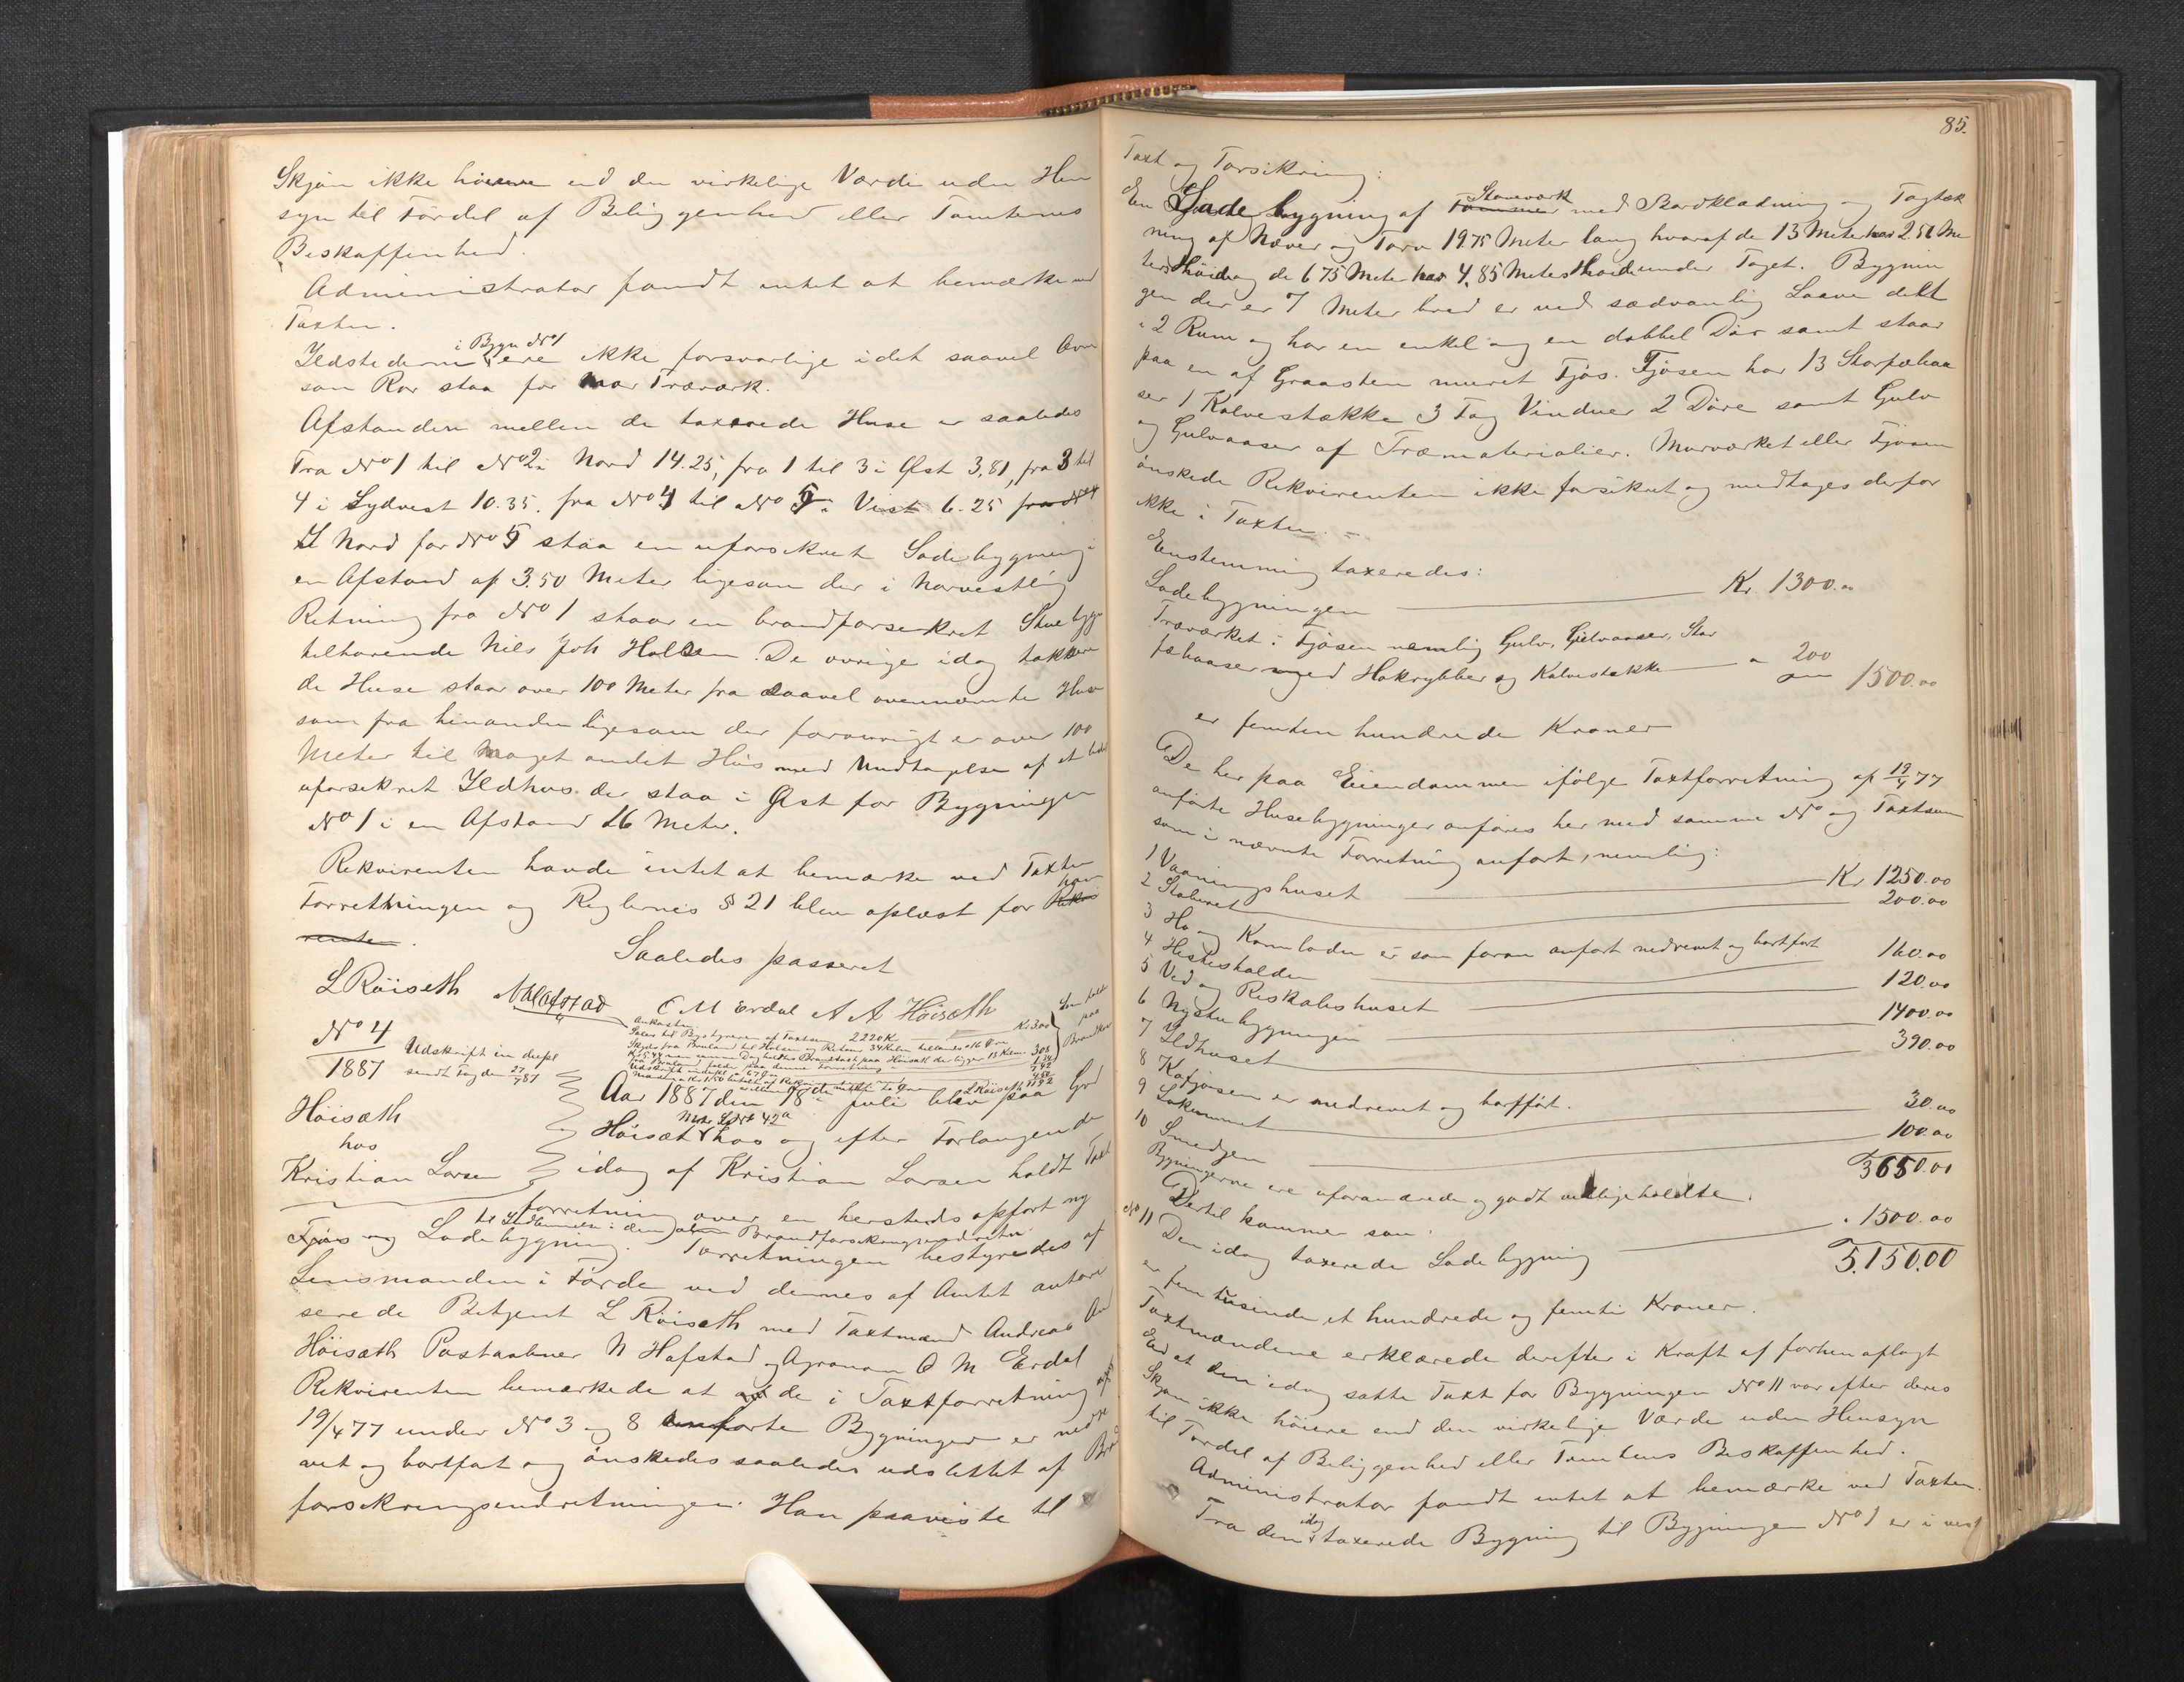 Skjön ikke höiere end den virkelige Værdi uden Hen
syn til Fördel af Beliggenhed eller Tomternes
Beskaffenhed.
Administrator fandt intet at bemærke ved
Taxten.
Ildstederne i Bygn No 1 ere ikke forsvarlige idet saavel Ovn
som Rör staa for nær Træværk.
Afstanden mellem de taxerede Huse er saaledes
Fra No 1 til No 2 i Nord 14.25, fra 1 til 3 i Öst 3,81, fra 3 til
4 i Sydvest 10.35. fra No 4 til No 5 i Vest 6.25 fra No 4
I Nord for No 5 staa en uforsikret Ladebygning i
en Afstand af 3.50 Meter ligesom der i Norvestlig
Retning fra No 1 staar en brandforsikret Stuebygn
tilhörende Nils Joh Halsen. De övrige idag takser
de Huse staar over 100 Meter fra saavel ovennævnte Huse
som fra hinanden ligesom der forövrigt er over 100
Meter til noget andet Hus med Undtagelse af et lidet
uforsikret Ildhus der staa i Öst for Bygningen
No 1 i en Afstand 26 Meter.
Rekvirenten havde intet at bemærke ved Taxten
Forretningen og Reglernes § 21 blev oplæst for ham Rekvi
renten.
Saaledes passeret
L Röiseth N Hafstad O M Erdal A A Höisæth
No 4
1887
Udskrift in dupl
sendt Fog den 27/7 87
Höisæth
hos
Kristian Larsen
Aar 1887 den 18de Juli blev paa Grd
Höisæth Matr LNo 42a hos og efter Forlangende
idag af Kristian Larsen holdt Taxt
forretning over en hersteds opfört ny
Fjös og Ladebygning til Indlemmelse i den alm Brandforsikringsindretn
Forretningen bestyredes af
Lensmanden i Förde ved dennes af Amtet autori
serede Betjent L Röiseth med Taxtmænd Andreas An
Höisæth Postaabner N Hafstad og Agronom O M Erdal
Rekvirenten bemærkede at de i Taxtforretning af
19/4 77 under No 3 og 8 anförte Bygninger er nedre
vet og bortfört og önskedes saaledes udslettet af Bra
forsikringsindretningen. Han paaviste til
85.
Taxt og Forsikring:
En Ladebygning af Stavværk Tömmer med Bordklædning og Tagtæk
ning af Næver og Torv 19.75 Meter lang hvoraf de 13 Meter har 2.51 Me
ters Höide og de 6.75 Meter har 4,85 Meters Höide under Taget. Bygnin
gen der er 7 Meter bred er ved sædvanlig Laave delt
i 2 Rum og har en enkel og en dobbel Dör samt staar
paa en af Graasten muret Fjös. Fjösen har 13 Storfæbaa
ser 1 Kalvestække 3 Fag Vinduer 2 Döre samt Gulv
og Gulvaaser af Træmaterialier. Murværket eller Fjösen
önskede Rekvirenten ikke forsikret og medtages derfor
ikke i Taxten.
Eenstemmig taxeredes:
Ladebygningen Kr 1300.00
Træværket i Fjösen nemlig Gulv, Gulvaaser, Stor
fæbaaser med Hökrybber og Kalvestække " 200 1500.00
er femten hundrede Kroner
De her paa Eiendommen ifölge Taxtforretning af 19/4 77
anförte Husebygninger anföres her med samme No og Taxtsum
som i nævnte Forretning anfört, nemlig:
1 Vaaningshuset Kr 1250.00
2 Staburet 200.00
3 Hö og Kornladen er som foran anfört nedrevet og bortfört
4 Hestestalden 160.00
5 Ved og Reskabshuset 120.00
6 Nystubygningen 1400.00
7 Ildhuset 390.00
8 Kofjösen er nedrevet og bortfört.
9 Lokummet 30.00
10 Smedjen 100.00
3650.00
Bygningerne ere uforandrede og godt vedligeholdte.
Hertil kommer som
No 11 Den idag taxerede Ladebygning " 1500.00
5.150.00
er fem tusinde et hundrede og femti Kroner.
Taxtmændene erklærede derefter i Kraft af forhen aflagt
Eed at den idag satte Taxt for Bygningen No 11 var efter deres
Skjön ikke höiere end den virkelige Værdi uden Hensyn
til Fordel af Beliggenhed eller Tomtens Beskaffenhed.
Administrator fandt intet at bemærke ved Taxten.
Fra den idag taxerede Bygning til Bygningen No 1 er i vest